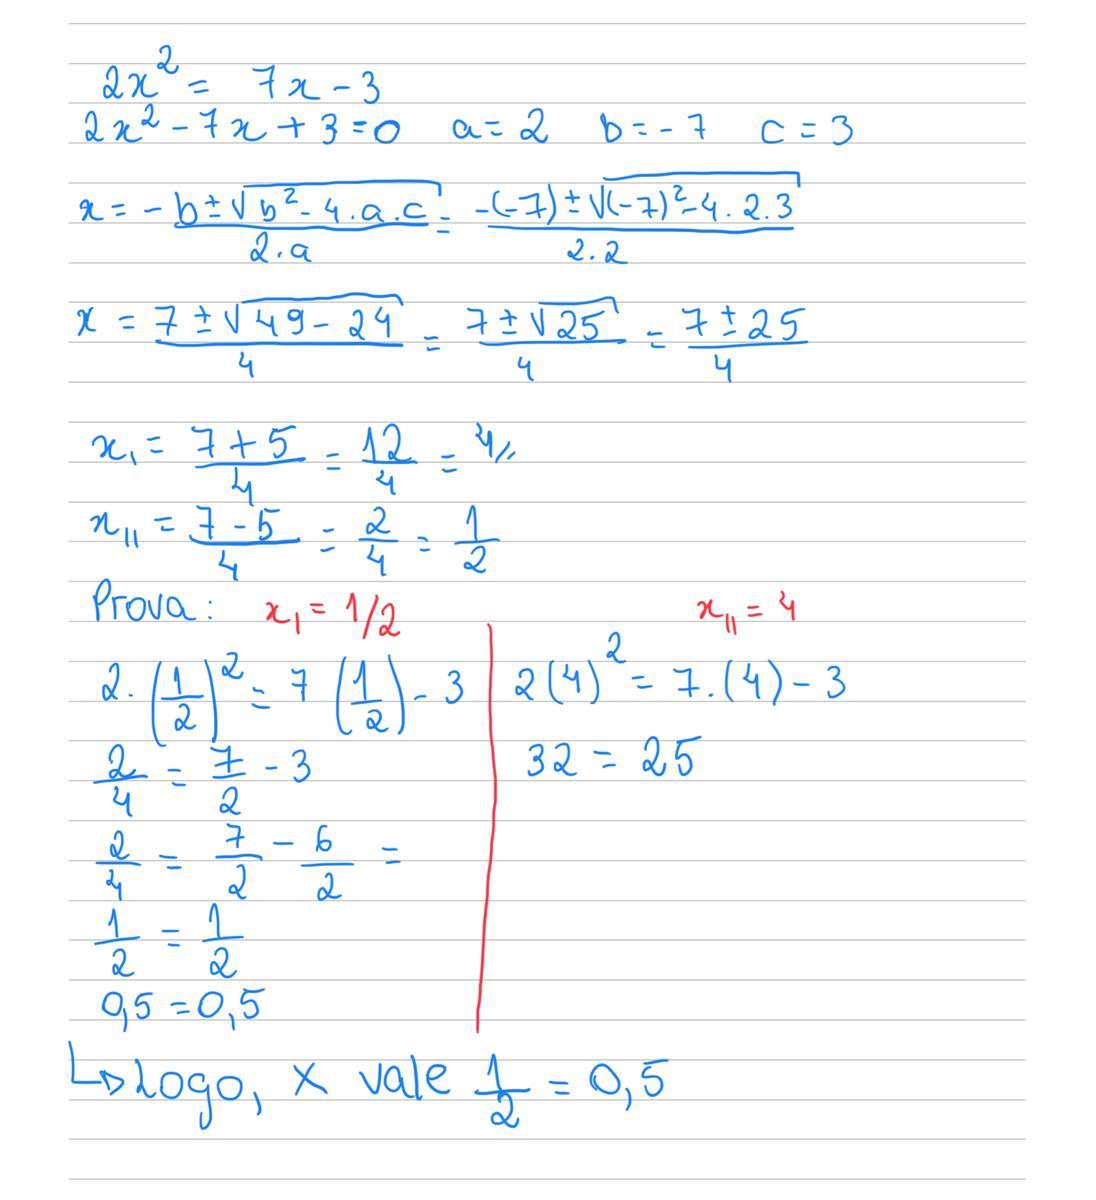 2x² = 7x - 3
2x² - 7x + 3 = 0 a = 2 b = -7 c = 3
x = -b ± √(b² - 4.a.c) / 2.a = -(-7) ± √((-7)² - 4.2.3) / 2.2
x = 7 ± √(49 - 24) / 4 = 7 ± √25 / 4 = 7 ± 25 / 4
x₁ = 7 + 5 / 4 = 12 / 4 = 4//
x₁₁ = 7 - 5 / 4 = 2 / 4 = 1 / 2
Prova: x₁ = 1/2 x₁₁ = 4
2.(1/2)² = 7(1/2) - 3 2(4)² = 7.(4) - 3
2/4 = 7/2 - 3 32 = 25
2/4 = 7/2 - 6/2 =
1/2 = 1/2
0,5 = 0,5
↳ Logo, x vale 1/2 = 0,5